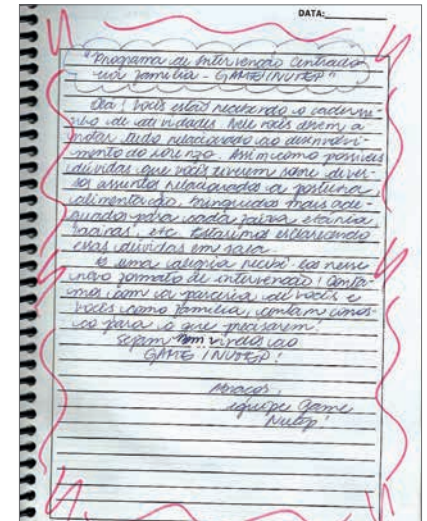 DATA:
"Programa de intervenção centrado
na família - GAME/NUTEP"
Olá! Vocês estão recebendo o caderni-
nho de atividades. Nele vocês devem a-
notar tudo relacionado ao desenvolvi-
mento do
Assim como possíveis
dúvidas que vocês tiverem sobre diver-
sos assuntos relacionados a postura,
alimentação, brinquedos mais ade-
quados para cada faixa etária,
etc. Estaremos esclarecendo
essas dúvidas em sala.
É uma alegria recebê-los nesse
novo formato de intervenção! Conta-
mos com a parceria de vocês e
vocês como família, contem conos-
co para o que precisarem!
Sejam bem vindos ao
GAME/NUTEP!
Abraços,
equipe Game
Nutep!